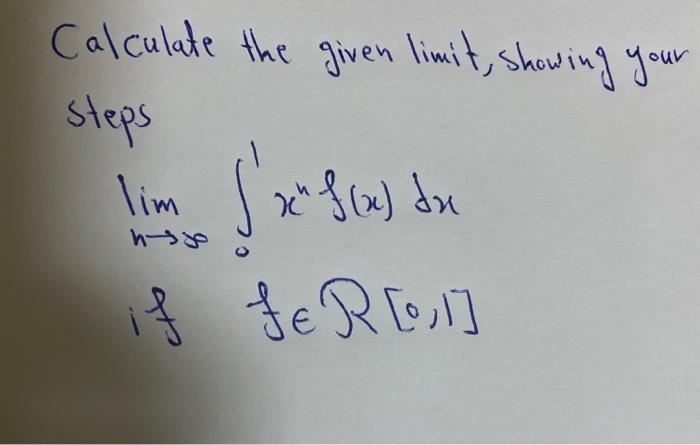 Calculate the given limit, showing your
steps
lim ∫₀¹ xⁿ f(x) dx
n→∞
if f ∈ R [0,1]